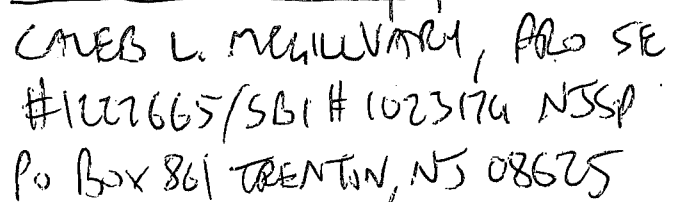 CALEB L. MCGILLVARY, PRO SE
#1222665/SBI # 102317G NJSP
PO BOX 861 TRENTON, NJ 08625